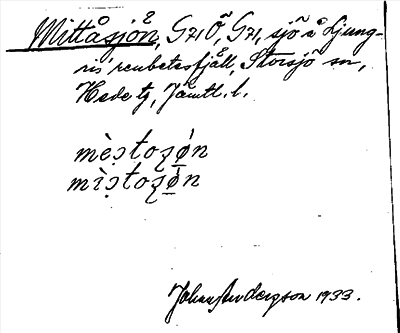 Mittåsjön, G71Ö, G71, sjö å Ljung-
ris' renbetesfjäll, Storsjö sn,
Hede tg, Jämtl. l.
mèstosǫ́n
mìstosǫ́n
Johan Andergson 1933.